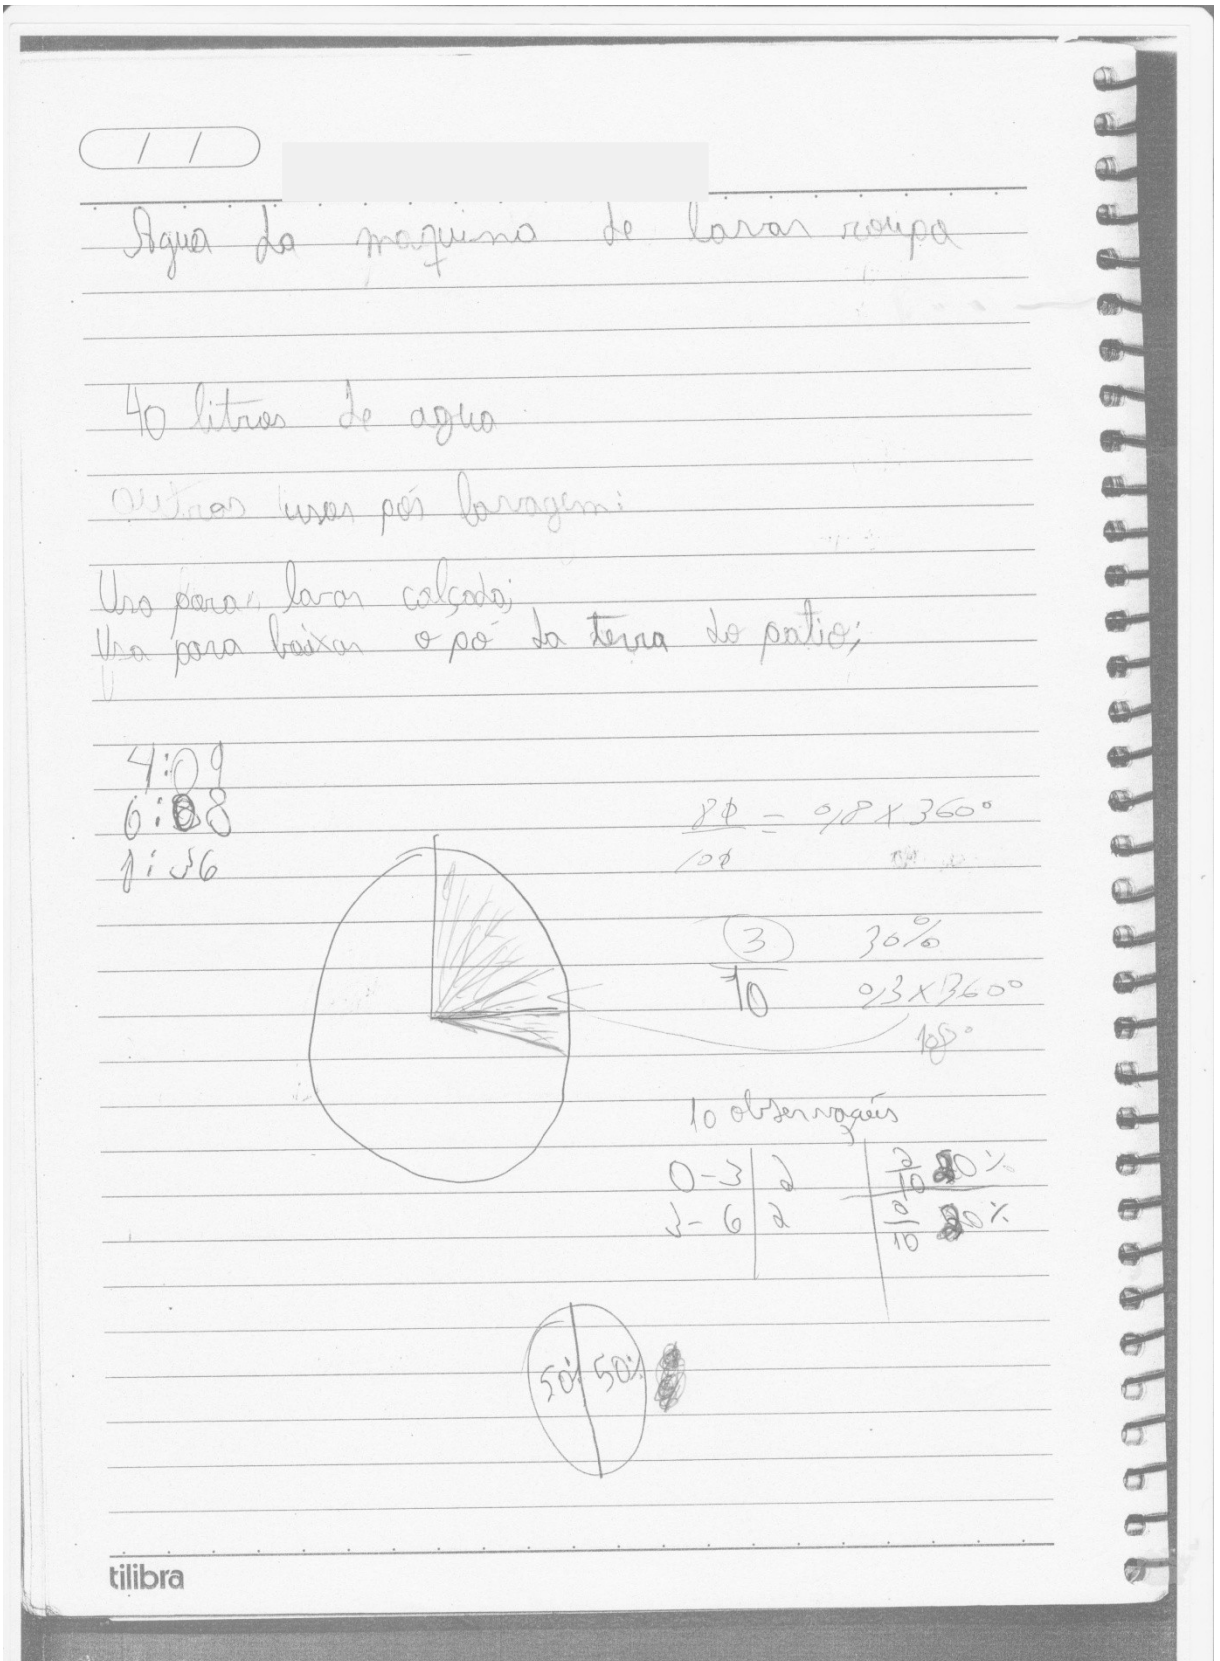 / /
Agua da maquina de lavar roupa
40 litros de agua
outros usos pós lavagem:
Uso para lavar calçada;
Usa para baixar o pó da terra do patio;
4:09
6:08
1:36
80/100 = 0,8 x 360°
3/10 30%
0,3 x 360°
108°
10 observações
0-3 | 2 | 2/10 20%
3-6 | 2 | 2/10 20%
50% 50%
tilibra